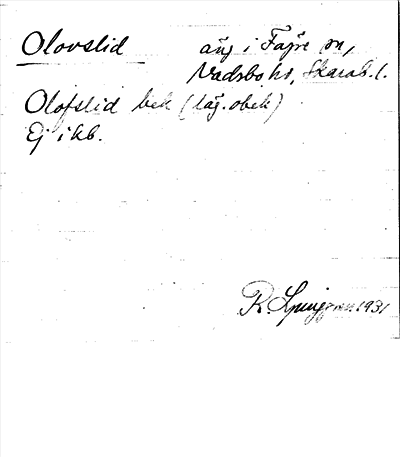 Olovslid äng i Fägre sn,
Vadsbo hd, Skarab. l.
Olofslid bek (läg. obek)
Ej i kb.
R. Ljunggren 1931